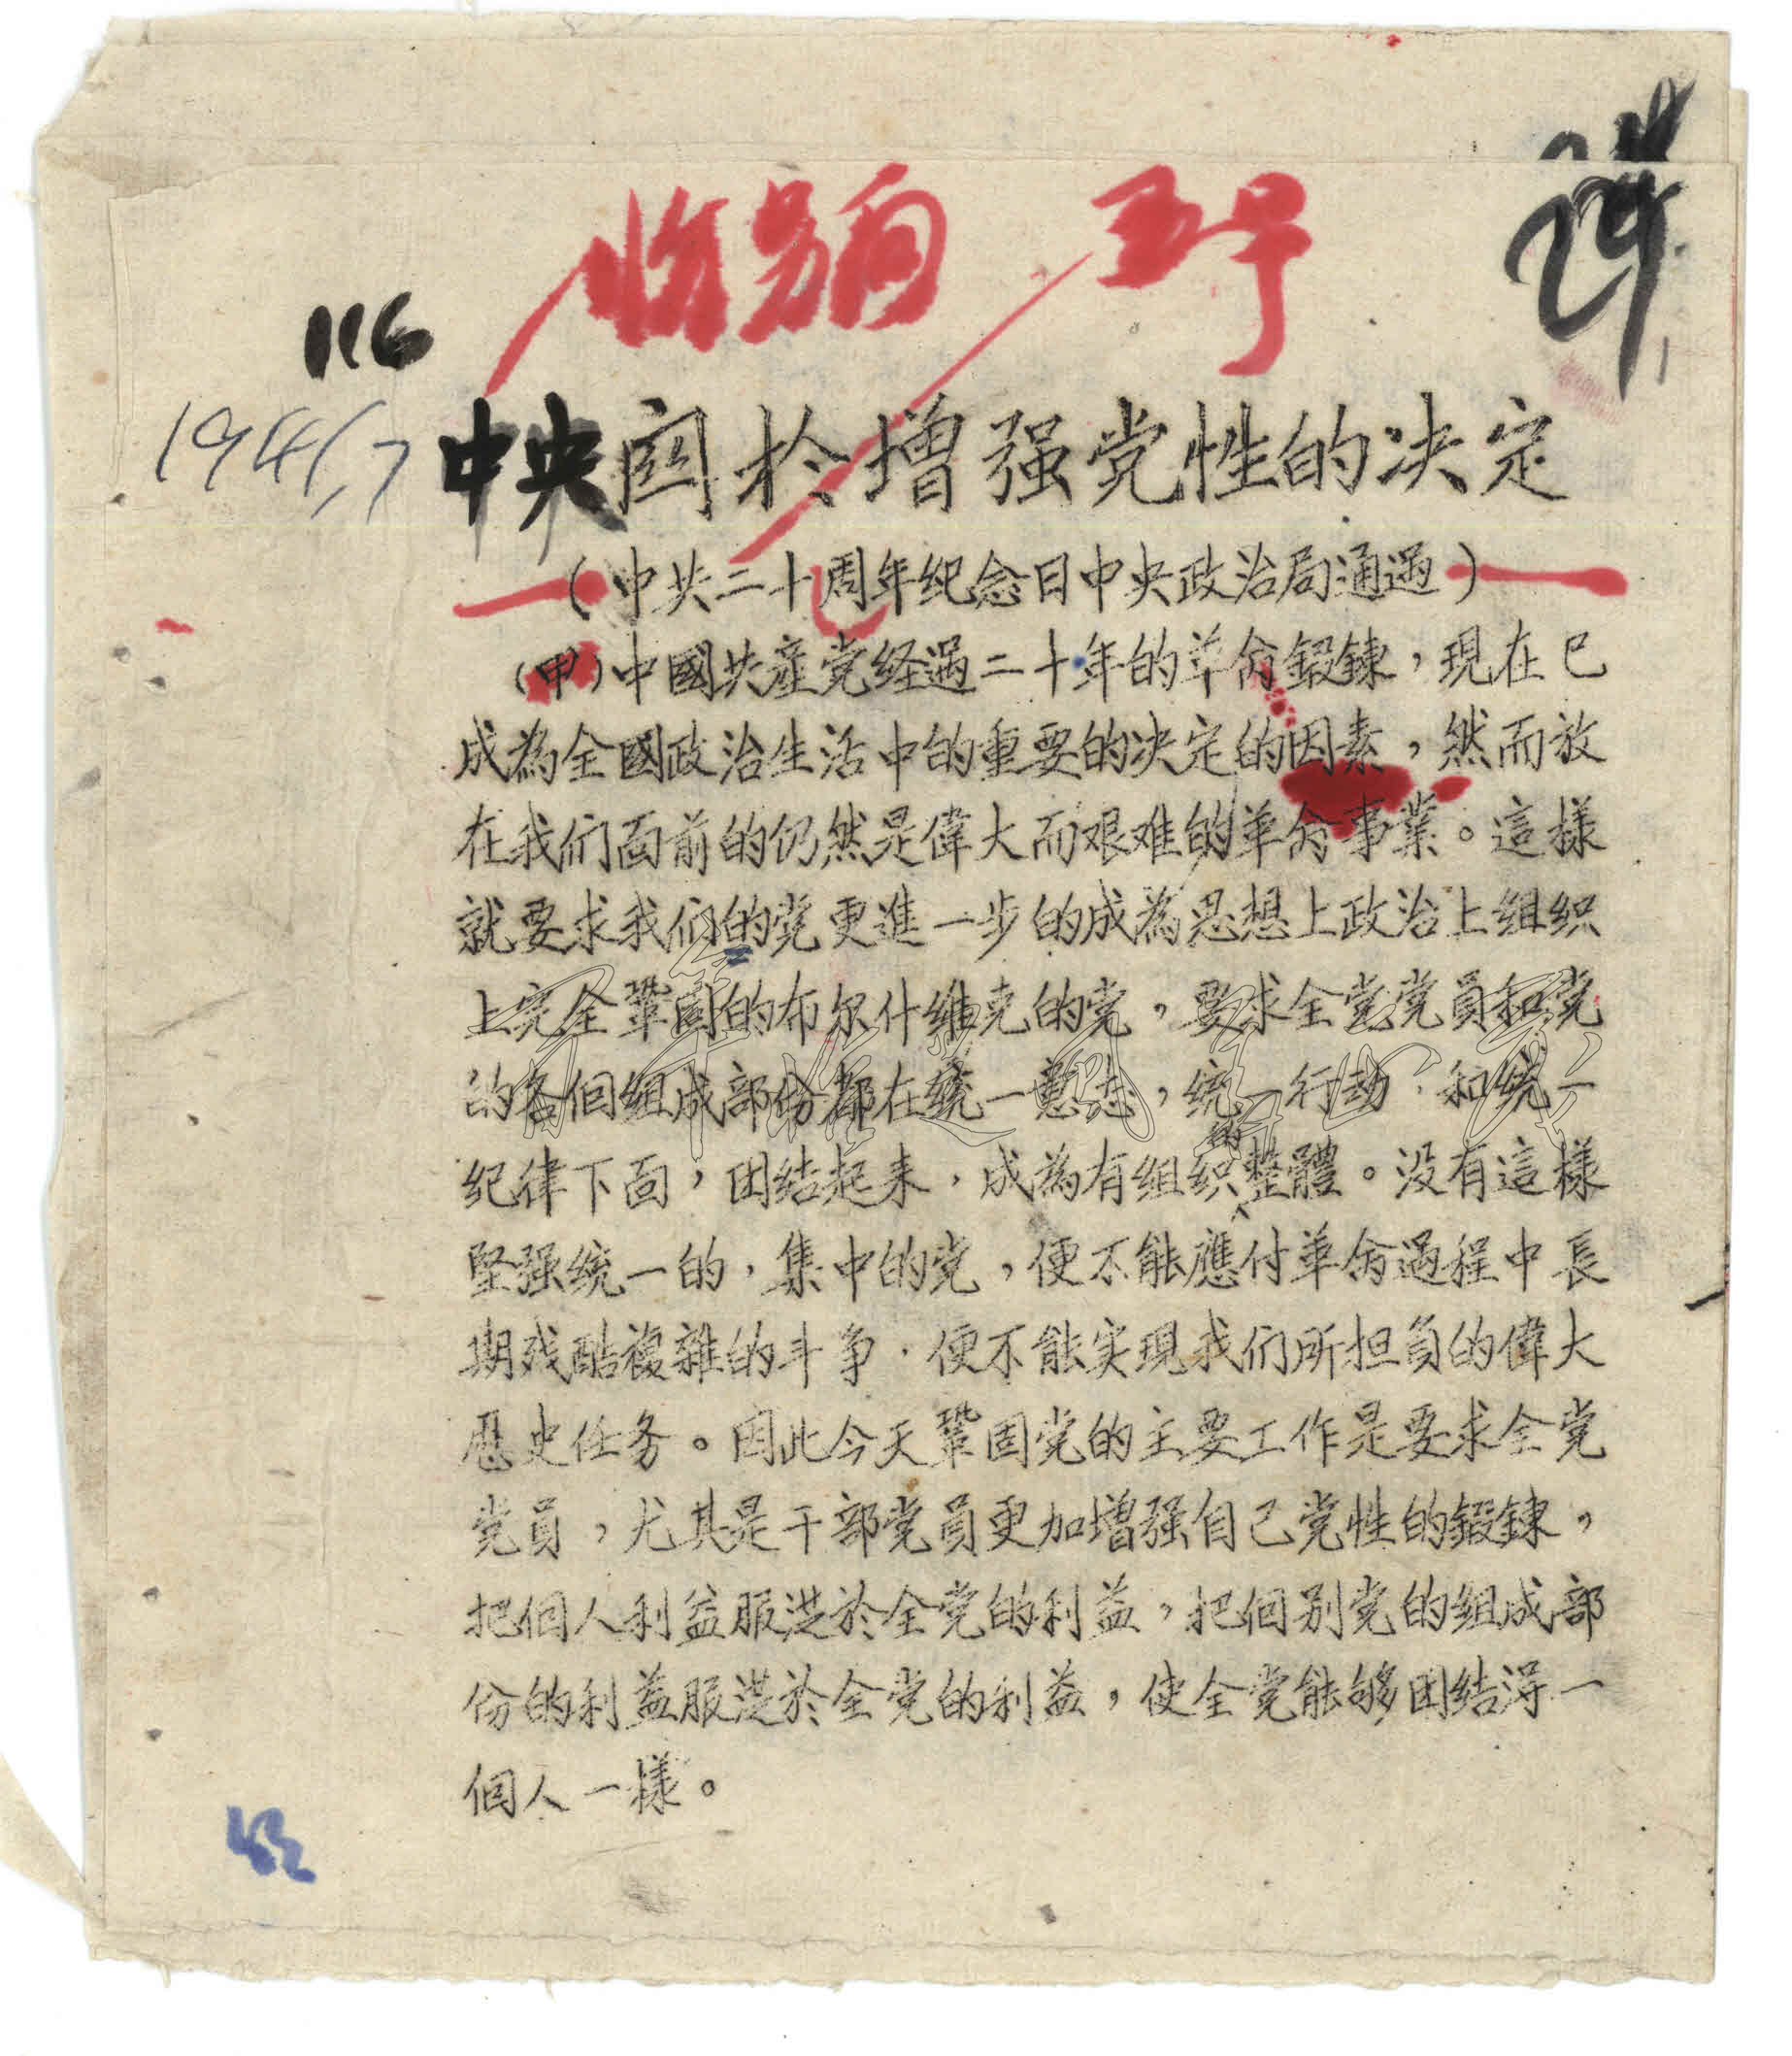 五号
24
116
1941,7
中央関於增强党性的决定
（中共二十周年纪念日中央政治局通過）
（甲）中國共產党经過二十年的革命鍛鍊，現在已
成為全國政治生活中的重要的决定的因素，然而放
在我们面前的仍然是偉大而艰难的革命事業。這樣
就要求我们的党更進一步的成為思想上政治上组织
上完全鞏固的布尔什维克的党，要求全党党員和党
的各個组成部份都在统一意志，统一行动，和统一
纪律下面，团结起来，成為有组织的整體。没有這樣
坚强统一的，集中的党，便不能應付革命過程中長
期残酷複雜的斗争，便不能实現我们所担負的偉大
歷史任务。因此今天鞏固党的主要工作是要求全党
党員，尤其是干部党員更加增强自己党性的鍛鍊，
把個人利益服從於全党的利益，把個别党的组成部
份的利益服從於全党的利益，使全党能够团结得一
個人一樣。